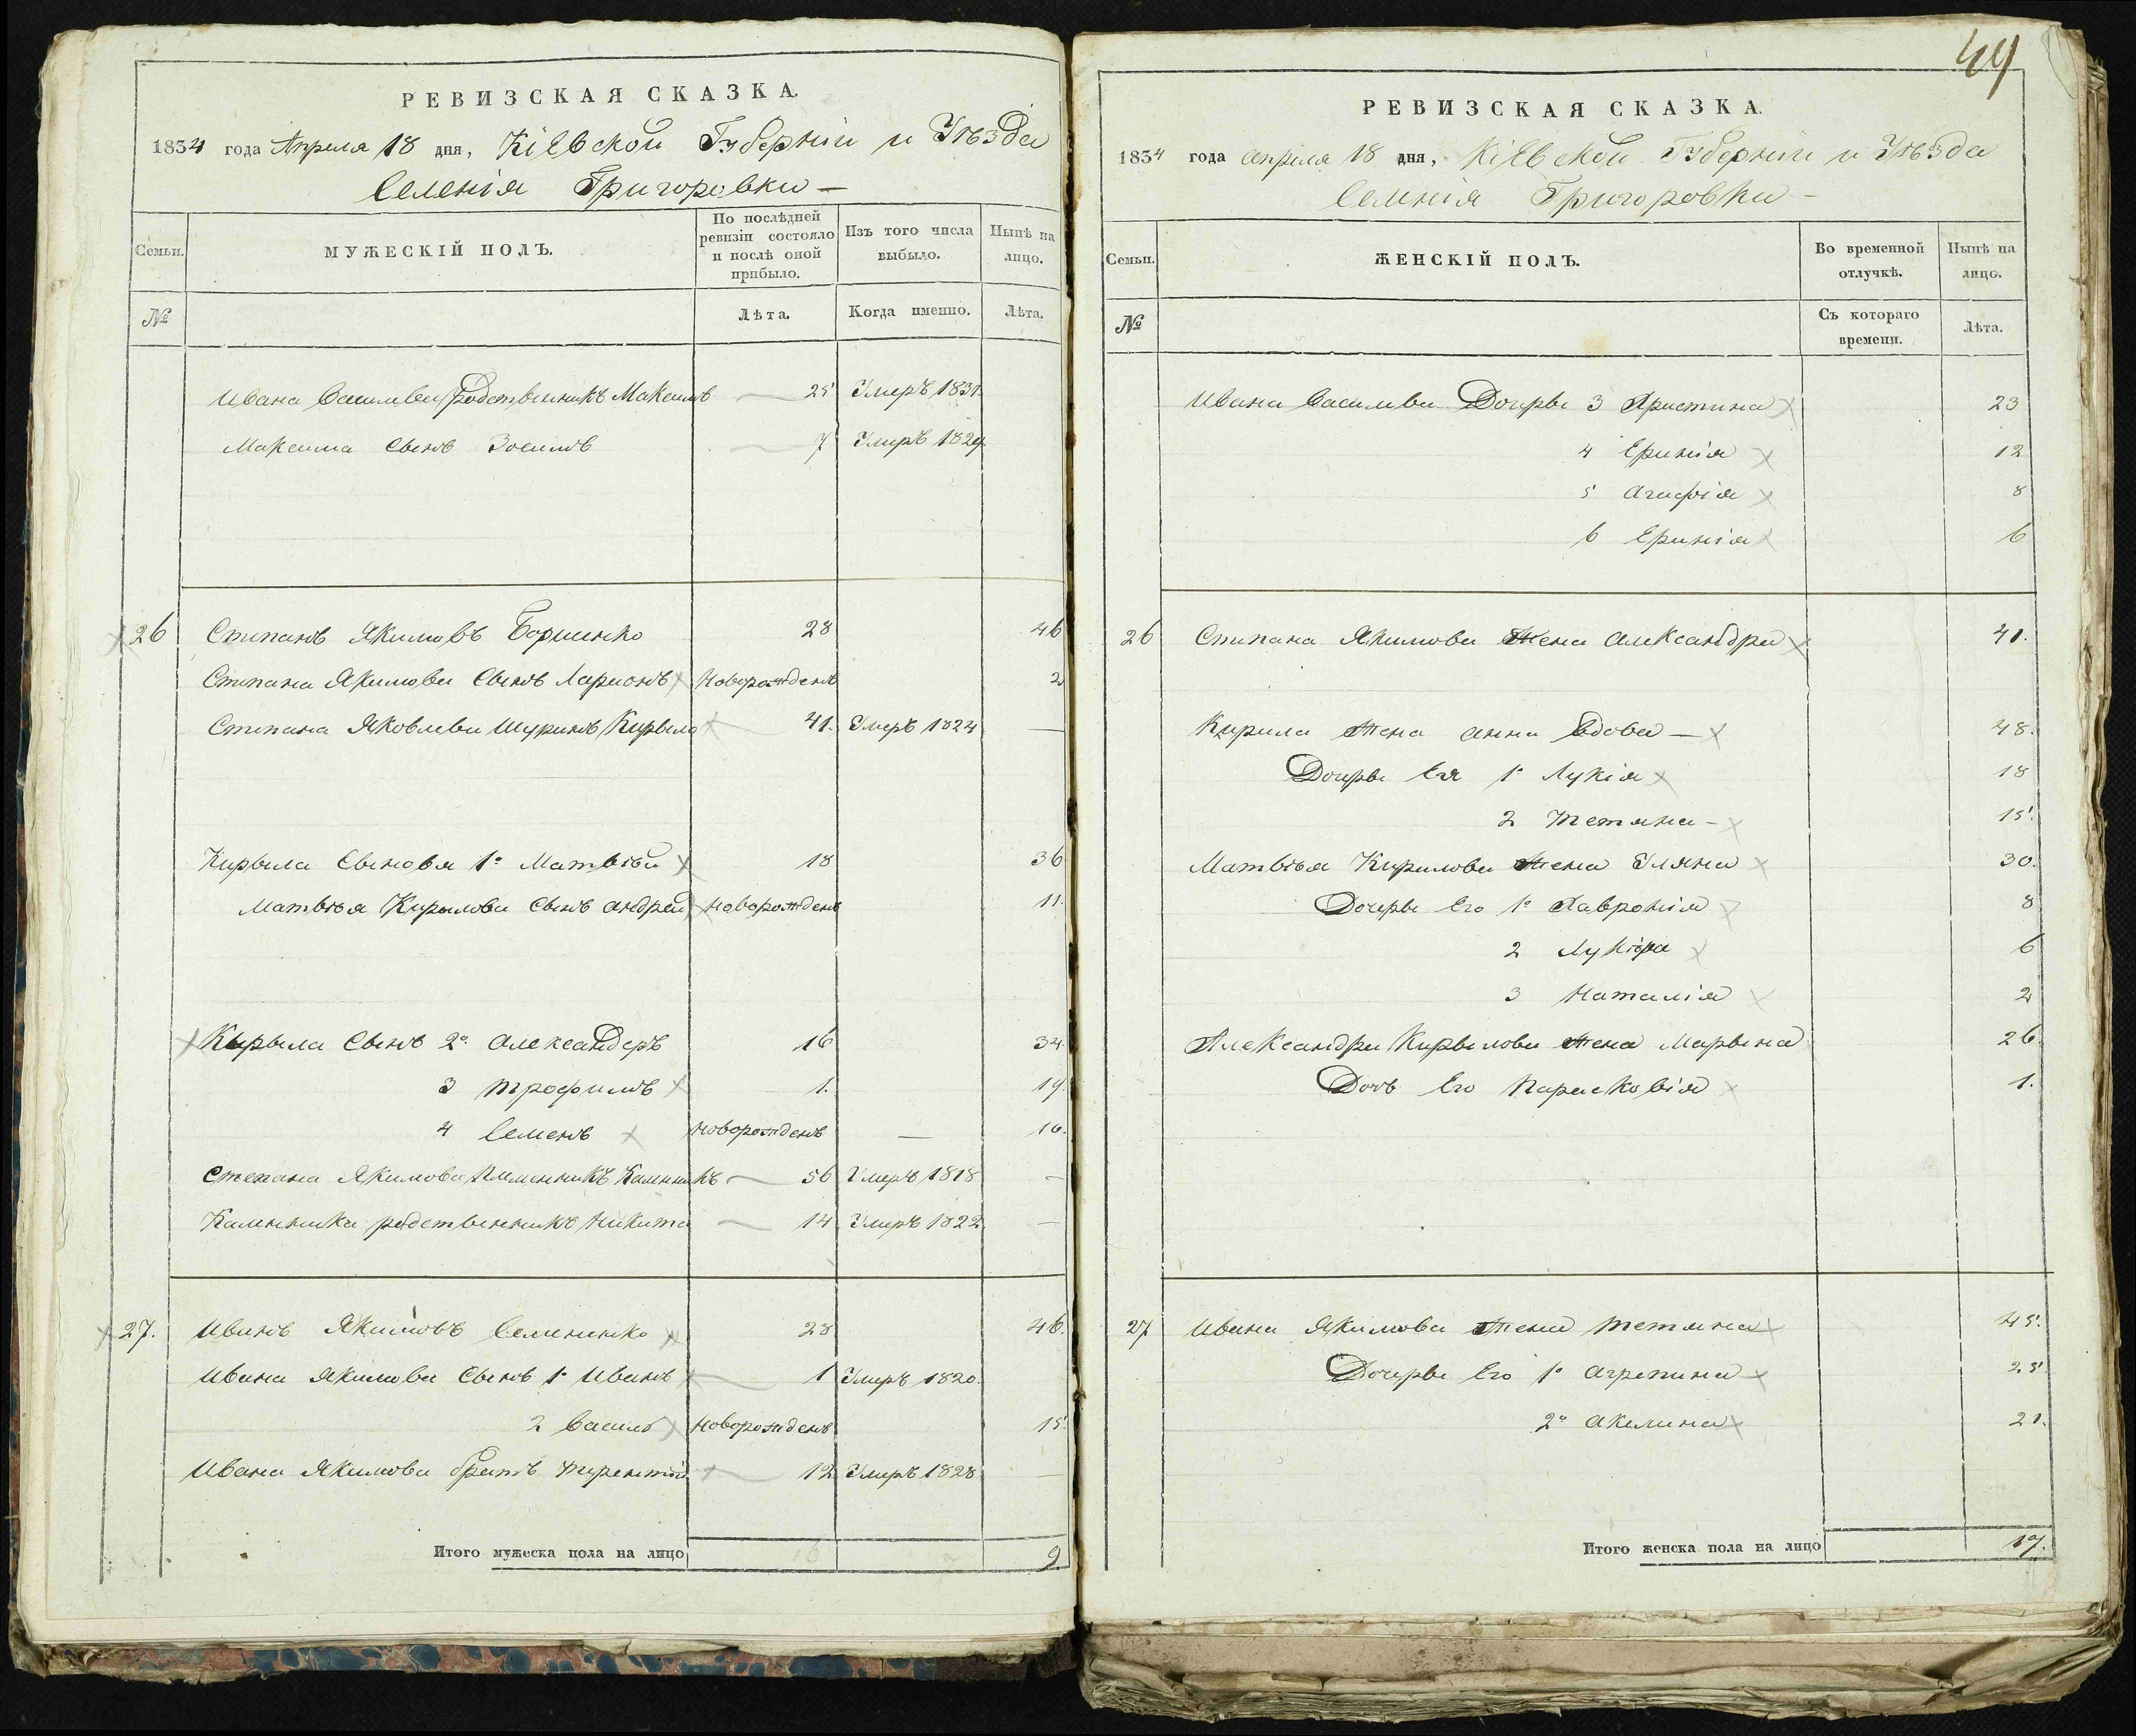 РЕВИЗСКАЯ СКАЗКА.
1834 года Апреля 18 дня, Кіевской Губерніи и Уѣзда
Селенія Григоровки —
Семьи.
МУЖЕСКІЙ ПОЛЪ.
По послѣдней ревизіи состояло и послѣ оной прибыло.
Изъ того числа выбыло.
Нынѣ на лицо.
№
Лѣта.
Когда именно.
Лѣта.
Ивана Василева родственникъ Максимъ — 25 Умеръ 1831.
Максима Сынъ Зосимъ — 7 Умеръ 1829.
26 Степанъ Якимовъ 28 46
Степана Якимова Сынъ Ларионъ Новорожденъ 2
Степана Яковлева Шуринъ Кирыло 41. Умеръ 1824 —
Кирыла Сыновя 1й Матвѣй 18 36
Матвѣя Кирылова Сынъ Андрей Новорожденъ 11.
Кырыла Сынъ 2й Александеръ 16 34.
3 Трофимъ 1. 19.
4 Семенъ Новорожденъ — 16.
Степана Якимова Племенникъ Калиникъ — 56 Умеръ 1818 —
Калинника родственникъ Никита — 14 Умеръ 1822 —
27. Иванъ Якимовъ Семененко 28 46.
Ивана Якимова Сынъ 1й Иванъ — 1 Умеръ 1820.
2 Василь Новорожденъ 15.
Ивана Якимова братъ Терентій — 12 Умеръ 1828 —
Итого мужеска пола на лицо 9
49
РЕВИЗСКАЯ СКАЗКА.
1834 года апреля 18 дня, Кіевской Губерніи и Уѣзда
Селенія Григоровки —
Семьи.
ЖЕНСКІЙ ПОЛЪ.
Во временной отлучкѣ.
Нынѣ на лицо.
№
Съ котораго времени.
Лѣта.
Ивана Василева Дочеры 3 Христина 23
4 Еринія 12
5 Агафія 8
6 Еринія 6
26 Степана Якимова Жена Александра 41.
Кирила Жена Анна Вдова — 48.
Дочеры Ея 1я Лукія 18
2 Тетяна — 15.
Матвѣя Кирилова Жена Уляна 30.
Дочеры Его 1я Хавронія 8
2 6
3 Наталія 2
Александра Кирылова Жена Марына 26.
Дочь Его Парасковія 1.
27 Ивана Якимова Жена Тетяна 45.
Дочеры Его 1я Агрепина 25
2я Акилина 21.
Итого женска пола на лицо 17.